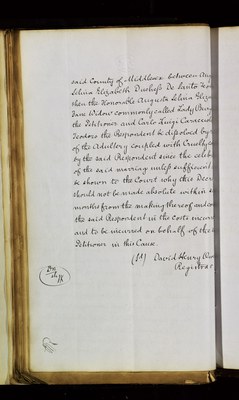 said County of Middlesex between Aug
Selina Elizabeth Duchess De Santo Teo
then the Honorable Augusta Selina Eliza
Jane Widow commonly called Lady Burg
the Petitioner and Carlo Luigi Caracciolo
Teodoro the Respondent be dissolved by
of the Adultery coupled with Cruelty
by the said Respondent since the celeb
of the said marriage unless sufficient
be shown to the Court why this Decr
should not be made absolute within si
months from the making thereof and con
the said Respondent in the costs incurr
and to be incurred on behalf of the
Petitioner in this Cause.
David Henry
Registrar